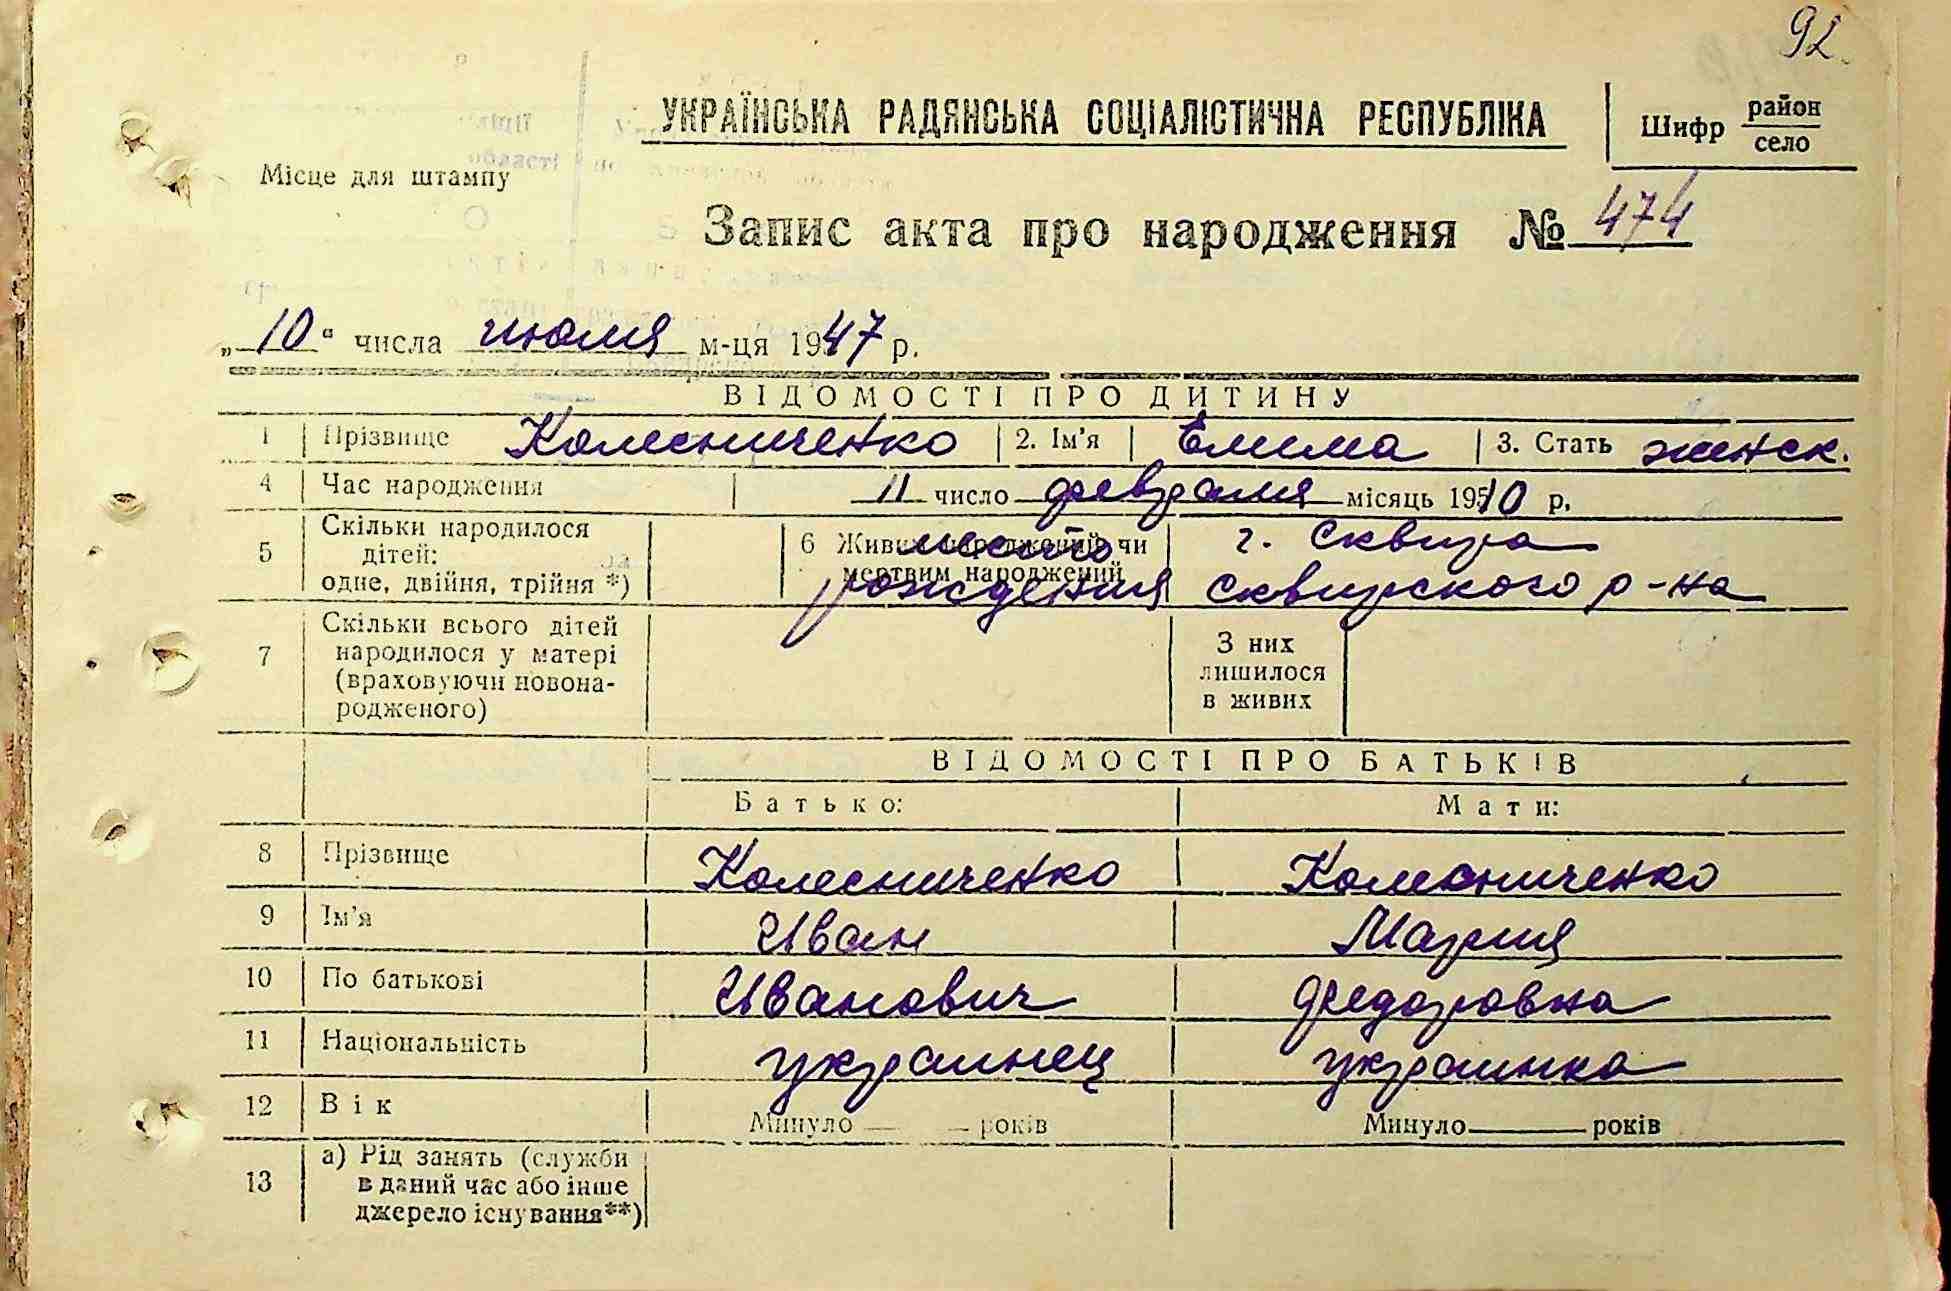 92
УКРАЇНСЬКА РАДЯНСЬКА СОЦІАЛІСТИЧНА РЕСПУБЛІКА
Шифр район село
Місце для штампу
Запис акта про народження № 474
„10“ числа июля м-ця 1947 р.
ВІДОМОСТІ ПРО ДИТИНУ
1 Прізвище Колесниченко 2. Ім'я Емима 3. Стать женск.
4 Час народження 11 число февраля місяць 1910 р.
5 Скільки народилося дітей: одне, двійня, трійня *) 6 Живим народжений чи мертвим народжений место рождения г. Сквира Сквирского р-на
7 Скільки всього дітей народилося у матері (враховуючи новонародженого) З них лишилося в живих
ВІДОМОСТІ ПРО БАТЬКІВ
Батько: Мати:
8 Прізвище Колесниченко Колесниченко
9 Ім'я Иван Мария
10 По батькові Иванович Федоровна
11 Національність украинец украинка
12 Вік Минуло — — років Минуло — років
13 а) Рід занять (служби в даний час або інше джерело існування**)